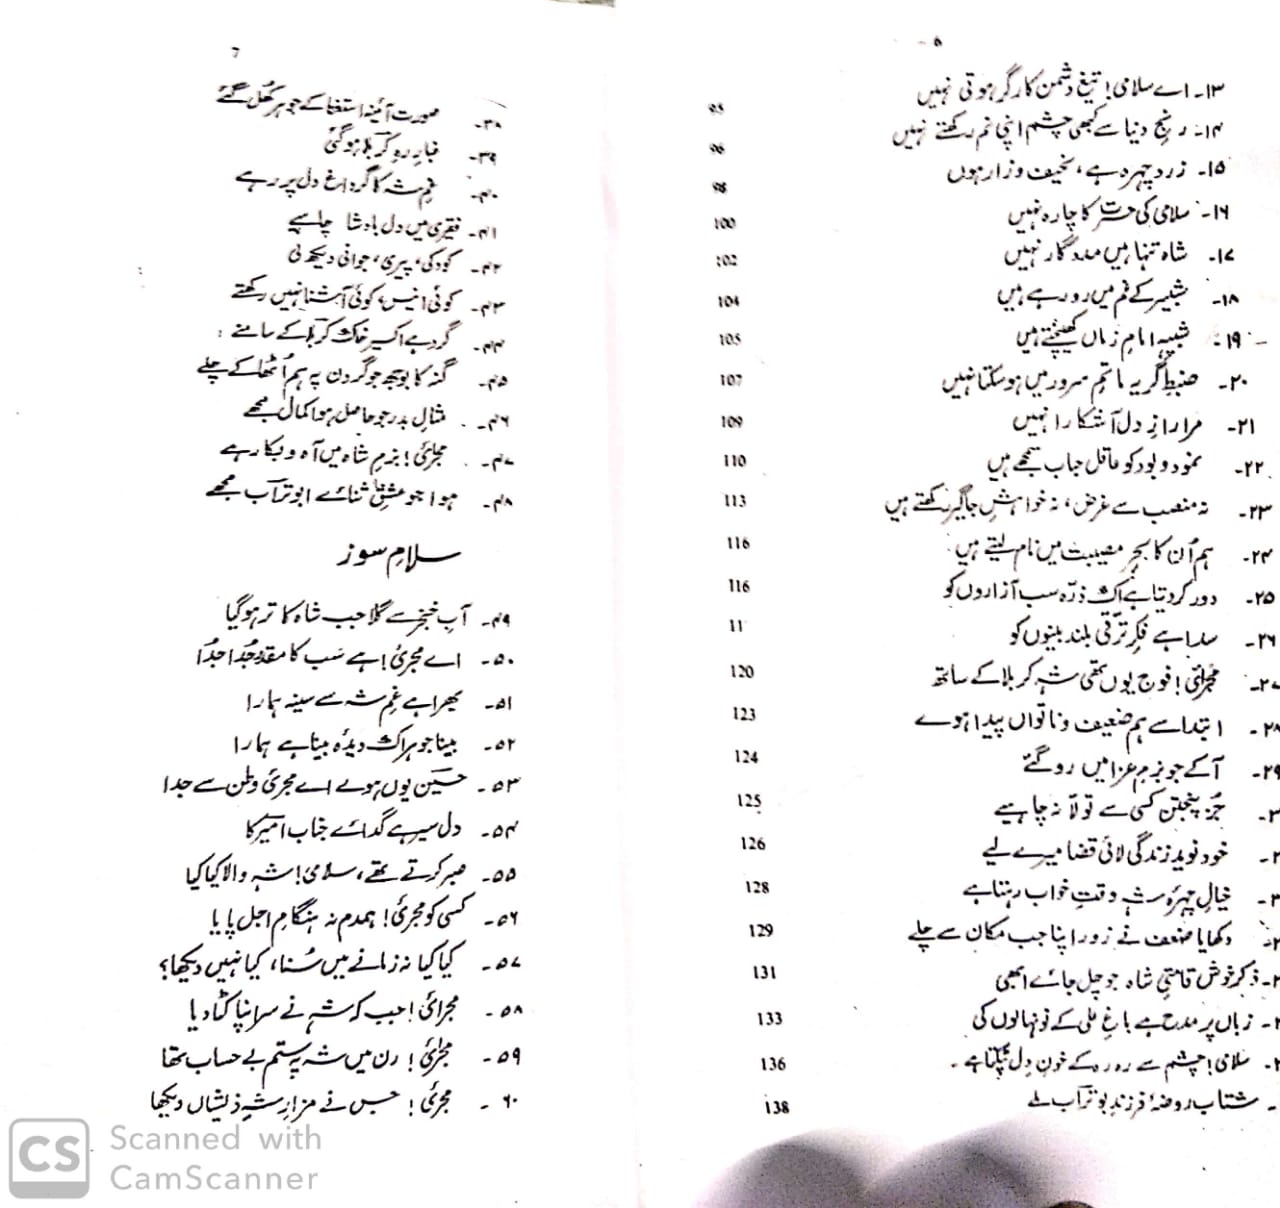 ۵
۱۳۔ اے سلامی! تیغ دشمن کارگر ہوتی نہیں 95
۱۴۔ رنج دنیا سے کبھی چشم اپنی نم رکھتے نہیں 96
۱۵۔ زرد چہرہ ہے، نحیف و زار ہوں 98
۱۶۔ سلامی کی حسرت کا چارہ نہیں 100
۱۷۔ شاہ تنہا ہیں مددگار نہیں 102
۱۸۔ شبیر کے غم میں رو رہے ہیں 104
۱۹۔ شبیہِ امامِ زماں کھینچتے ہیں 105
۲۰۔ ضبطِ گریہ ماتمِ سرور میں ہو سکتا نہیں 107
۲۱۔ مرا رازِ دل آشکارا نہیں 109
۲۲۔ نمود و بود کو عاقل حباب سمجھے ہیں 110
۲۳۔ نہ منصب سے غرض، نہ خواہشِ جاگیر رکھتے ہیں 113
۲۴۔ ہم اُن کا بحرِ مصیبت میں نام لیتے ہیں 116
۲۵۔ دور کر دیتا ہے اک ذرّہ سب آزاروں کو 116
۲۶۔ سدا ہے فکرِ ترقی بلند بینوں کو 11
۲۷۔ مجرائی! فوج یوں تھی شہِ کربلا کے ساتھ 120
۲۸۔ ابتدا سے ہم ضعیف و ناتواں پیدا ہوے 123
۲۹۔ آکے جو بزمِ عزا میں رو گئے 124
۳۔ جُز پنجتن کسی سے تولّا نہ چاہیے 125
۳۔ خود نویدِ زندگی لائی قضا میرے لیے 126
۳۔ خیالِ چہرۂ شہ وقتِ خواب رہتا ہے 128
۳۔ دکھایا ضعف نے زور اپنا جب مکاں سے چلے 129
۳۔ ذکر خوش قامتیِ شاہ جو چل جائے ابھی 131
۳۔ زباں پر مدح ہے باغِ علی کے نونہالوں کی 133
۳۔ سلامی! چشم سے رہ رہ کے خونِ دل ٹپکتا ہے۔ 136
۔ شتاب روضۂ فرزندِ بوتراب ملے 138
۶
۳۸۔ صورت آئینہ استغنا کے جوہر کھُل گئے
۳۹۔ غبارِ رہِ کربلا ہو گئی
۴۰۔ غمِ شہ کا گر داغ دل پر رہے
۴۱۔ فقیری میں دل بادشا چاہیے
۴۲۔ کودکی، پیری، جوانی دیکھ لی
۴۳۔ کوئی انیس، کوئی آشنا نہیں رکھتے
۴۴۔ گرد ہے اکسیر خاکِ کربلا کے سامنے :
۴۵۔ گنہ کا بوجھ جو گردن پہ ہم اُٹھا کے چلے
۴۶۔ مثالِ بدر جو حاصل ہوا کمال مجھے
۴۷۔ مجرئی! بزمِ شاہ میں آہ و بکا رہے
۴۸۔ ہوا جو عشقِ ثنائے ابوتراب مجھے
سلامِ سوز
۴۹۔ آبِ خنجر سے گلا جب شاہ کا تر ہو گیا
۵۰۔ اے مجرئی! ہے سَب کا مقدر جُدا جُدا
۵۱۔ بھرا ہے غمِ شہ سے سینہ ہمارا
۵۲۔ بینا جو ہر اک دیدۂ بینا ہے ہمارا
۵۳۔ حسین یوں ہوے اے مجرئی وطن سے جدا
۵۴۔ دل سیر ہے گدائے جناب امیر کا
۵۵۔ صبر کرتے تھے، سلامی! شہِ والا کیا کیا
۵۶۔ کسی کو مجرئی! ہمدم نہ ہنگامِ اجل پایا
۵۷۔ کیا کیا نہ زمانے میں سُنا، کیا نہیں دیکھا؟
۵۸۔ مجرائی! جب کہ شہ نے سر اپنا کٹا دیا
۵۹۔ مجرئی! رن میں شہ پہ ستم بے حساب تھا
۶۰۔ مجرئی! جس نے مزارِ شہِ ذیشاں دیکھا
CS Scanned with
CamScanner